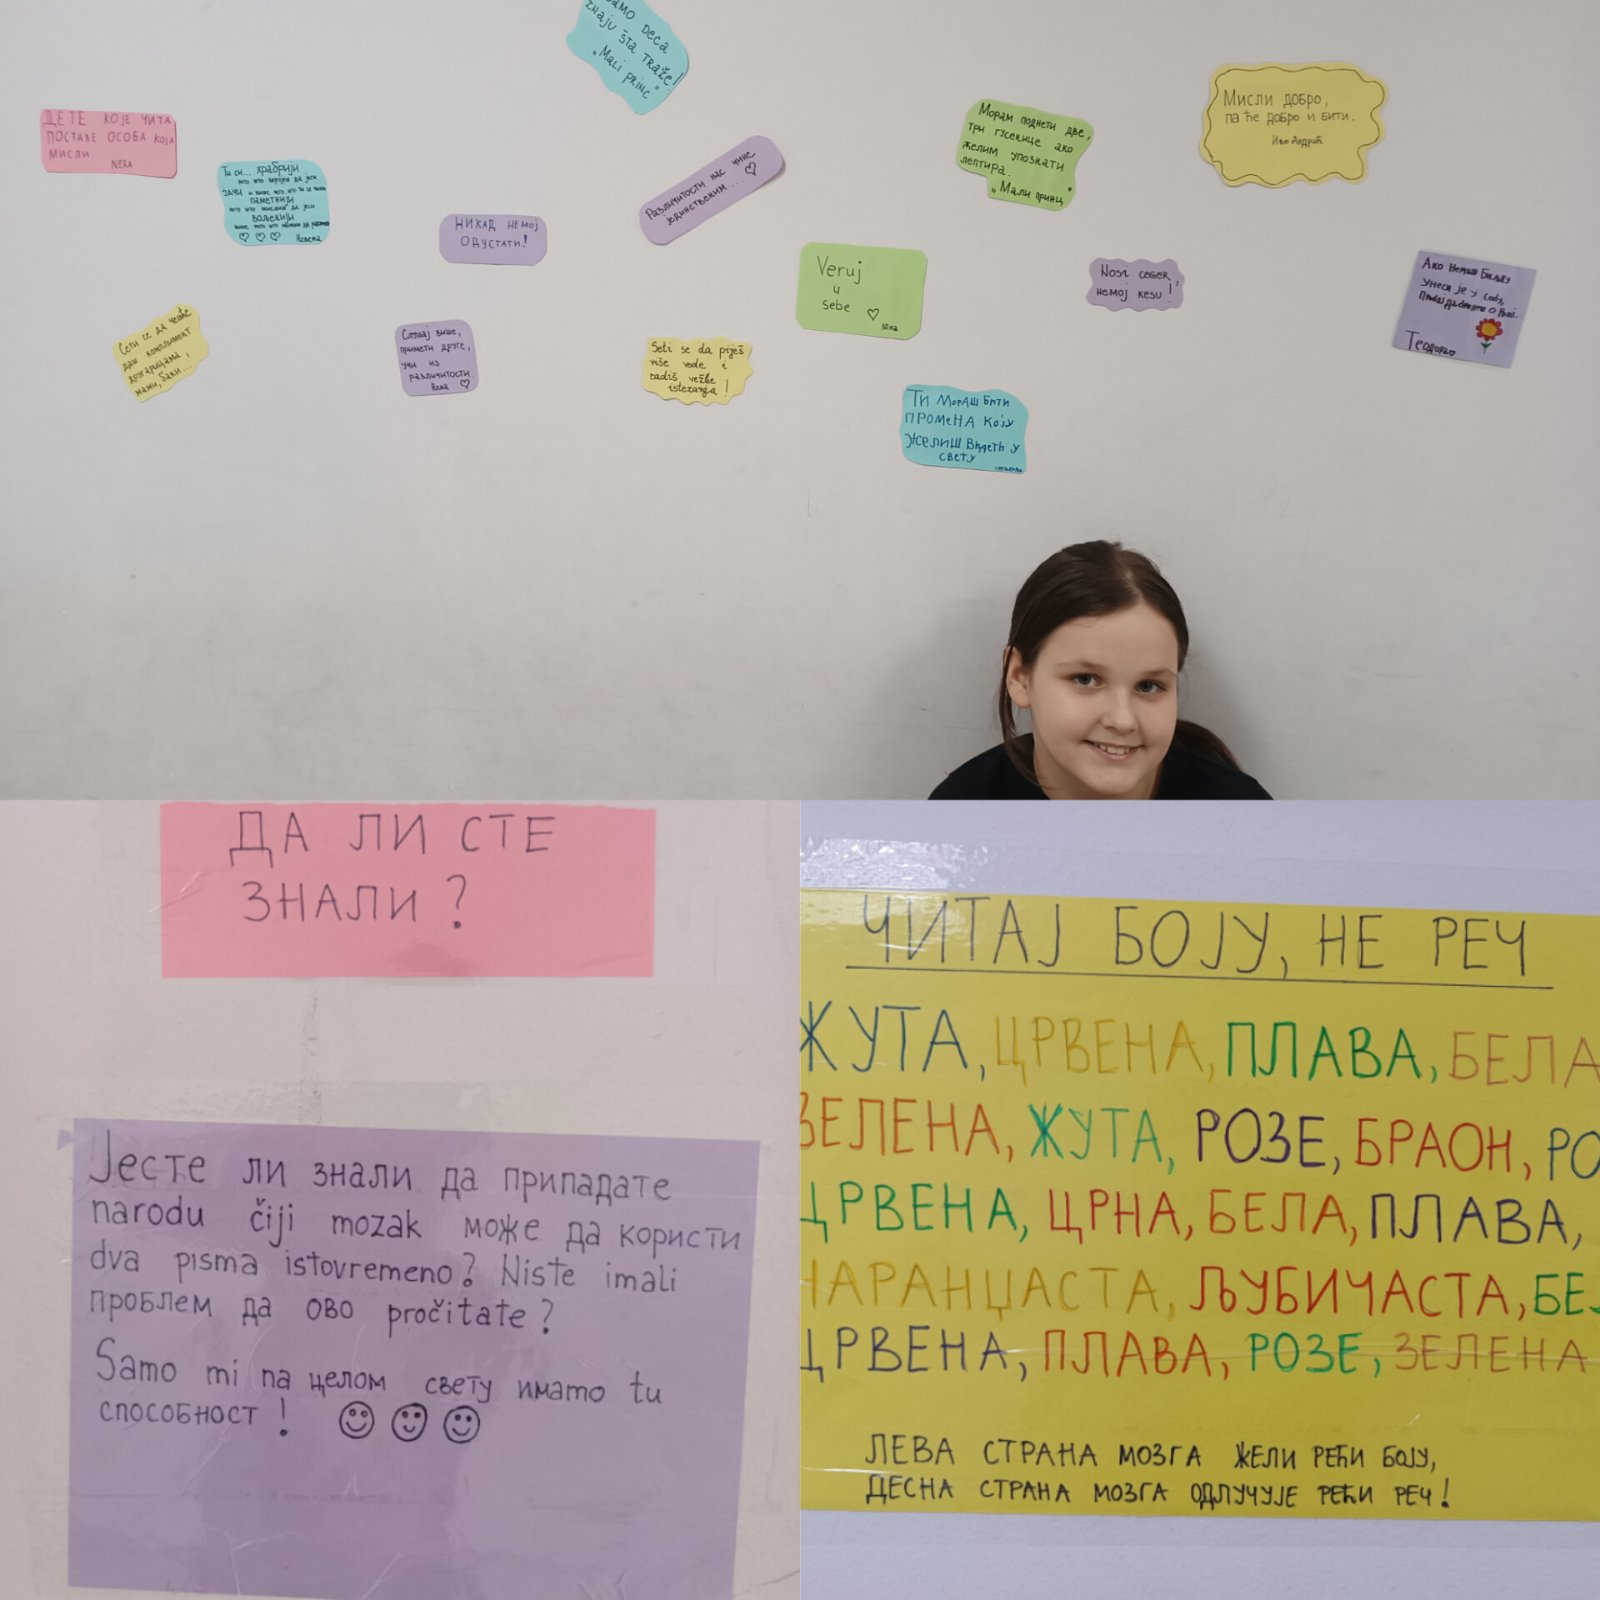 ДЕТЕ КОЈЕ ЧИТА
ПОСТАЈЕ ОСОБА КОЈА
МИСЛИ.
NERA
Ти си... храбрији
него што верујеш да јеси
јачи
паметнији
него што мислиш да јеси
вољенији
Невена
НИКАД НЕМОЈ
ОДУСТАТИ!
DECA
znaju šta traže!
„Mali princ"
Различитости нас чине
јединственим...
Морам поднети две,
три гусенице ако
желим упознати
лептира.
„Мали принц"
Мисли добро,
па ће добро и бити.
Иво Андрић
Сети се да чешће
даш комплимент
другарицама,
мами, баки...
Слушај више,
примети друге,
учи из
различитости
Нена
Seti se da piješ
više vode i
radiš vežbe
istezanja!
Veruj
u
sebe
Nina
Nosi ceger,
nemoj kesu!
Ако немаш биљку
унеси је у собу,
Теодора
ТИ МОРАШ БИТИ
ПРОМЕНА КОЈУ
ЖЕЛИШ ВИДЕТИ У
СВЕТУ
ДА ЛИ СТЕ
ЗНАЛИ?
Јесте ли знали да припадате
narodu čiji mozak може да користи
dva pisma istovremeno? Niste imali
проблем да ово pročitate?
Samo mi na целом свету имамо tu
способност!
ЧИТАЈ БОЈУ, НЕ РЕЧ
ЖУТА, ЦРВЕНА, ПЛАВА, БЕЛА
ЗЕЛЕНА, ЖУТА, РОЗЕ, БРАОН, РО
ЦРВЕНА, ЦРНА, БЕЛА, ПЛАВА,
НАРАНЏАСТА, ЉУБИЧАСТА, БЕЛ
ЦРВЕНА, ПЛАВА, РОЗЕ, ЗЕЛЕНА
ЛЕВА СТРАНА МОЗГА ЖЕЛИ РЕЋИ БОЈУ,
ДЕСНА СТРАНА МОЗГА ОДЛУЧУЈЕ РЕЋИ РЕЧ!